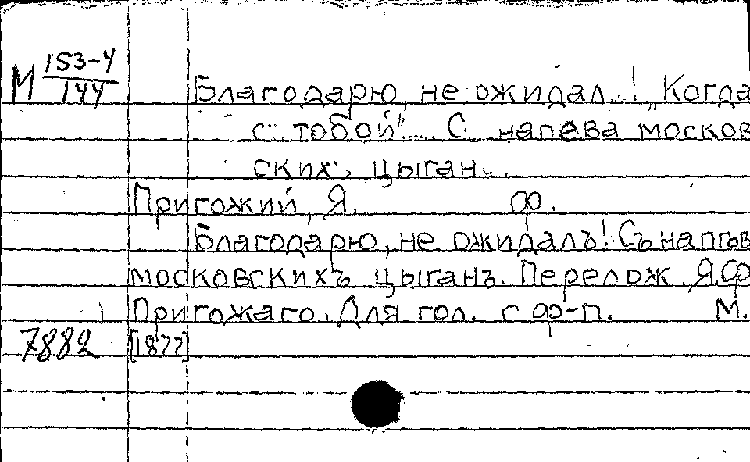 М 153-4/144
Благодарю, не ожидал..! „Когда
с тобой"... С напева москов
ских цыган...
Пригожий, Я. Ф.
Благодарю, не ожидалъ! Съ напѣв
московскихъ цыганъ. Перелож. Я.Ф
Пригожаго. Для гол. с ф-п. М.
7882 [1877]